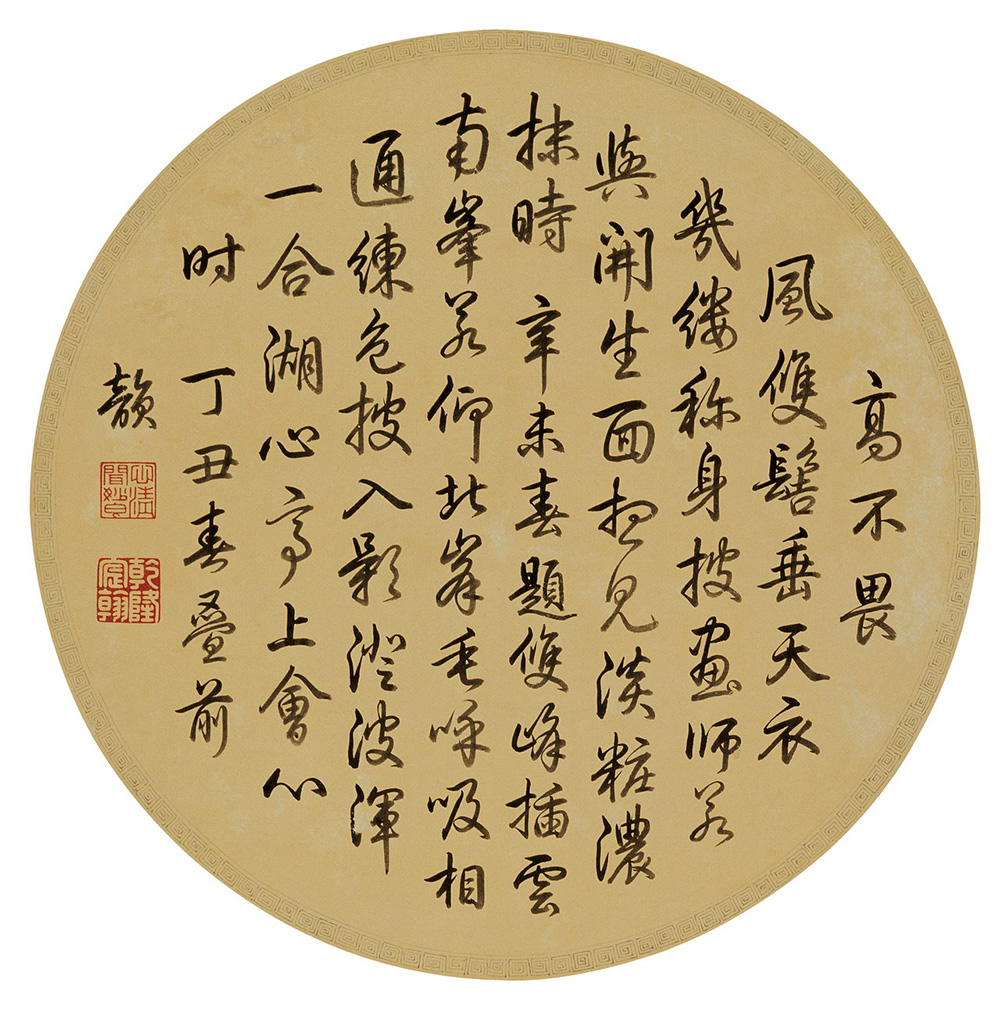 高不畏
風雙髻垂天衣
幾縷称身披畫師若
與開生面想見淡粧濃
抹時 辛未春題雙峰插雲
南峯若仰北峯垂呼吸相
通練色披入影澄波渾
一合湖心亭上會心
时 丁丑春疊前
韻
乾隆宸翰